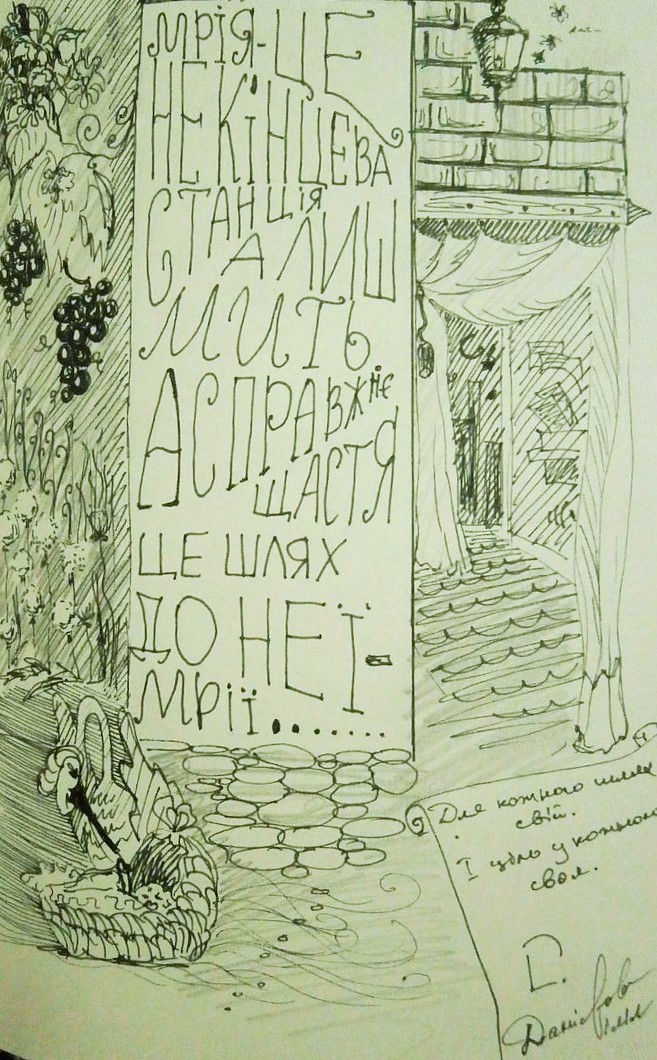 МРІЯ-ЦЕ
НЕ КІНЦЕВА
СТАНЦІЯ
А ЛИШ
МИТЬ
А СПРАВЖНЄ
ЩАСТЯ
ЦЕ ШЛЯХ
ДО НЕЇ-
МРІЇ........
Для кожного шлях
свій.
І ціло у кожного
своя.